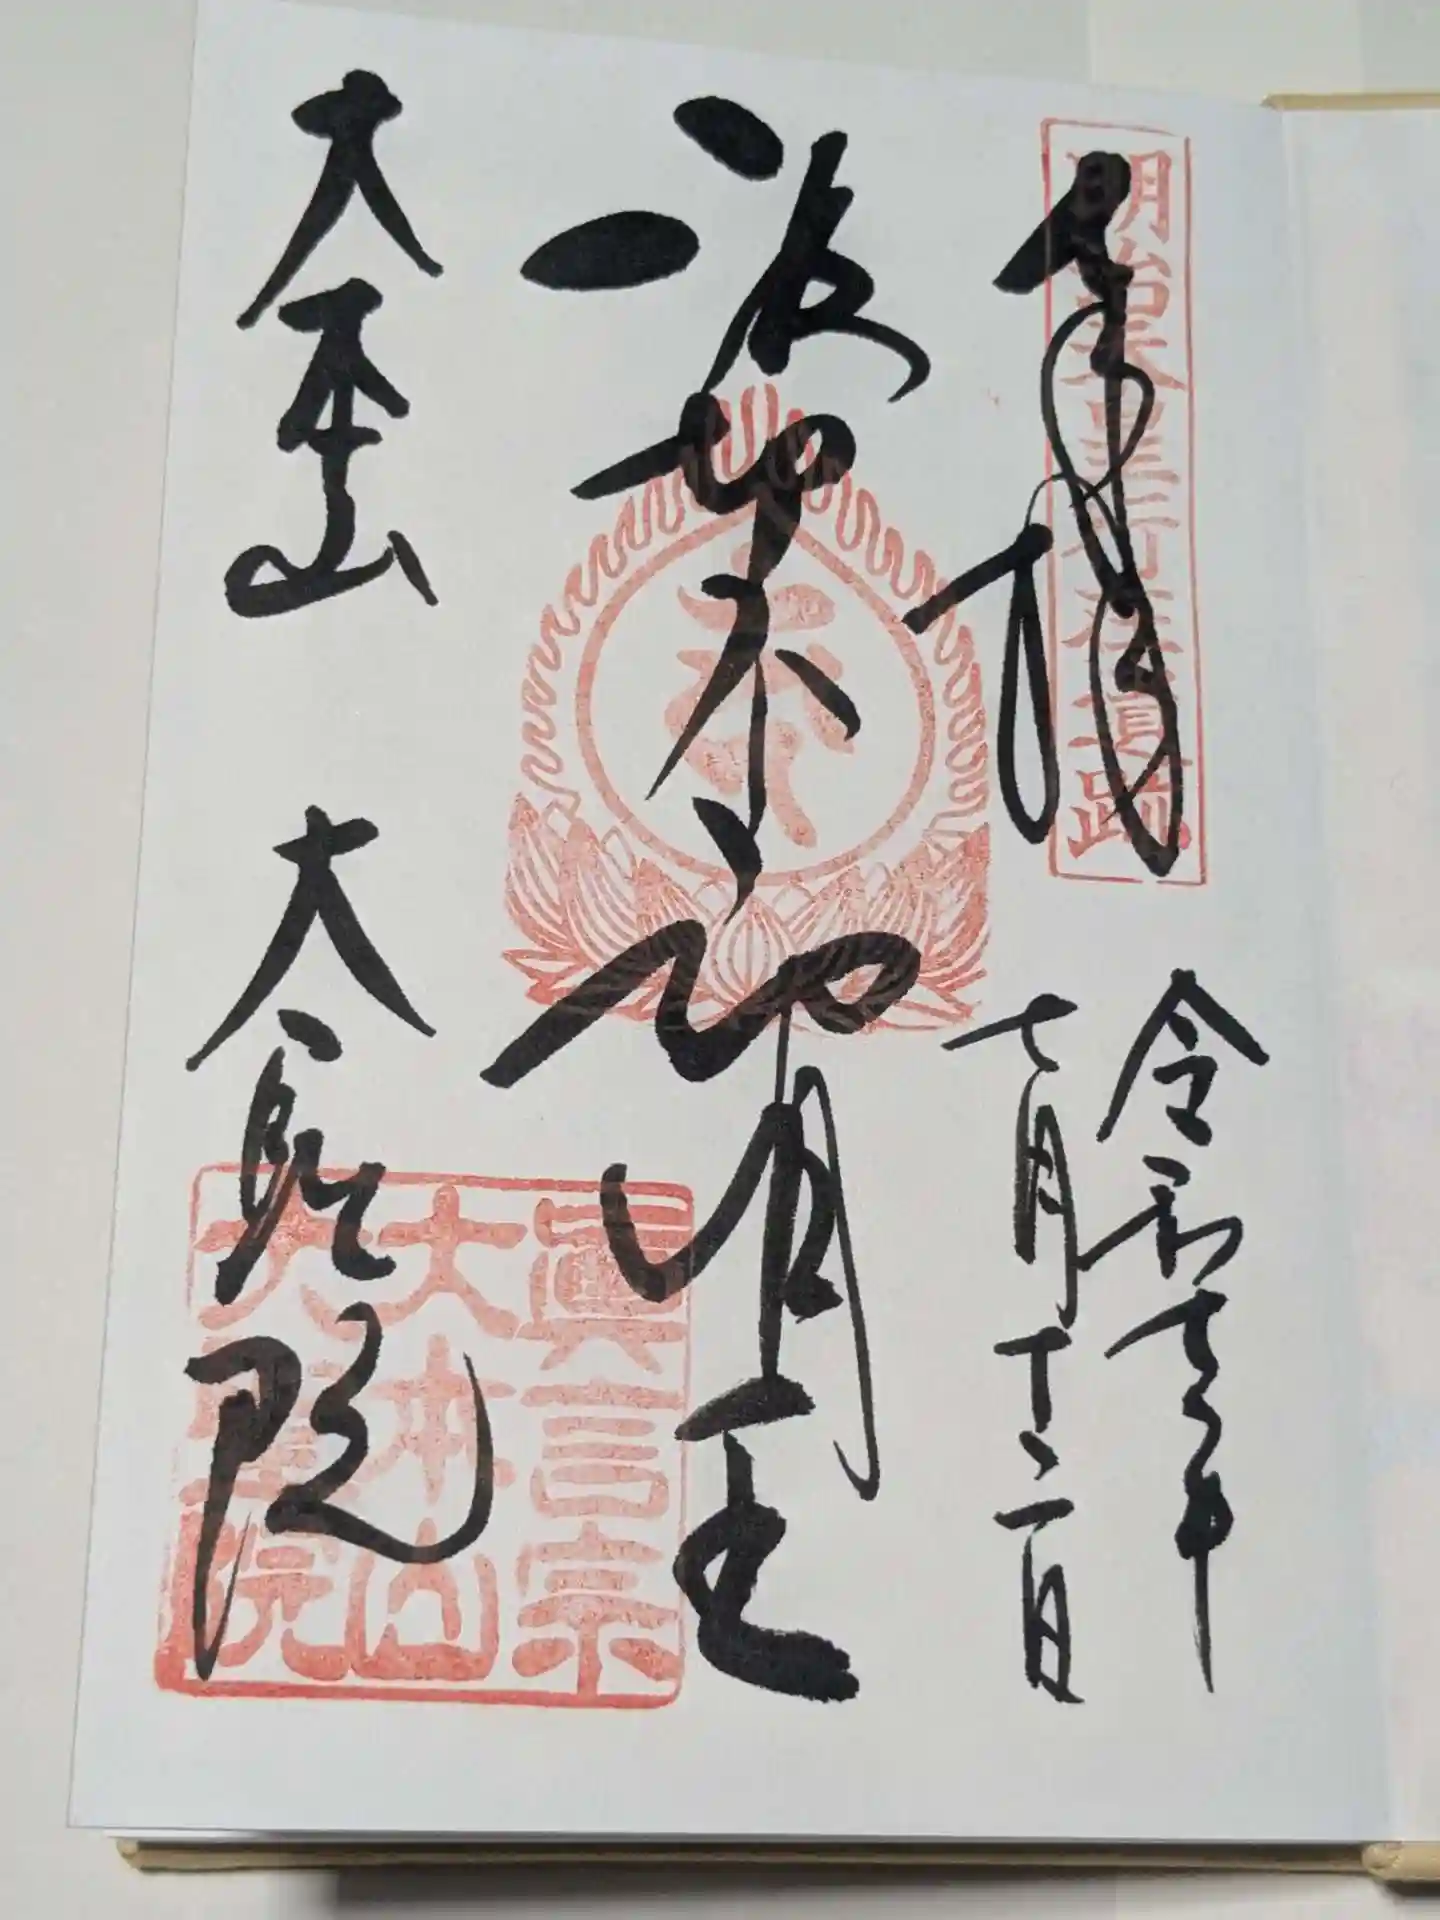 明治天皇行在遺跡
奉拝
令和七年
七月十二日
波切不動明王
大本山 大聖院
眞言宗
大本山
大聖院